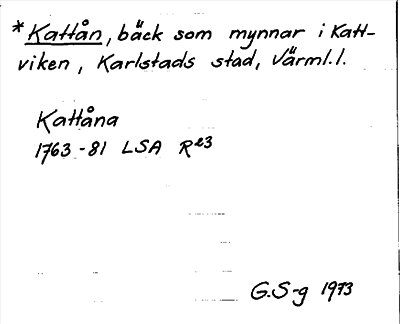 *Kattån, bäck som mynnar i Katt-
viken, Karlstads stad, Värml.l.
Kattåna
1763-81 LSA R e3
G.S-g 1973